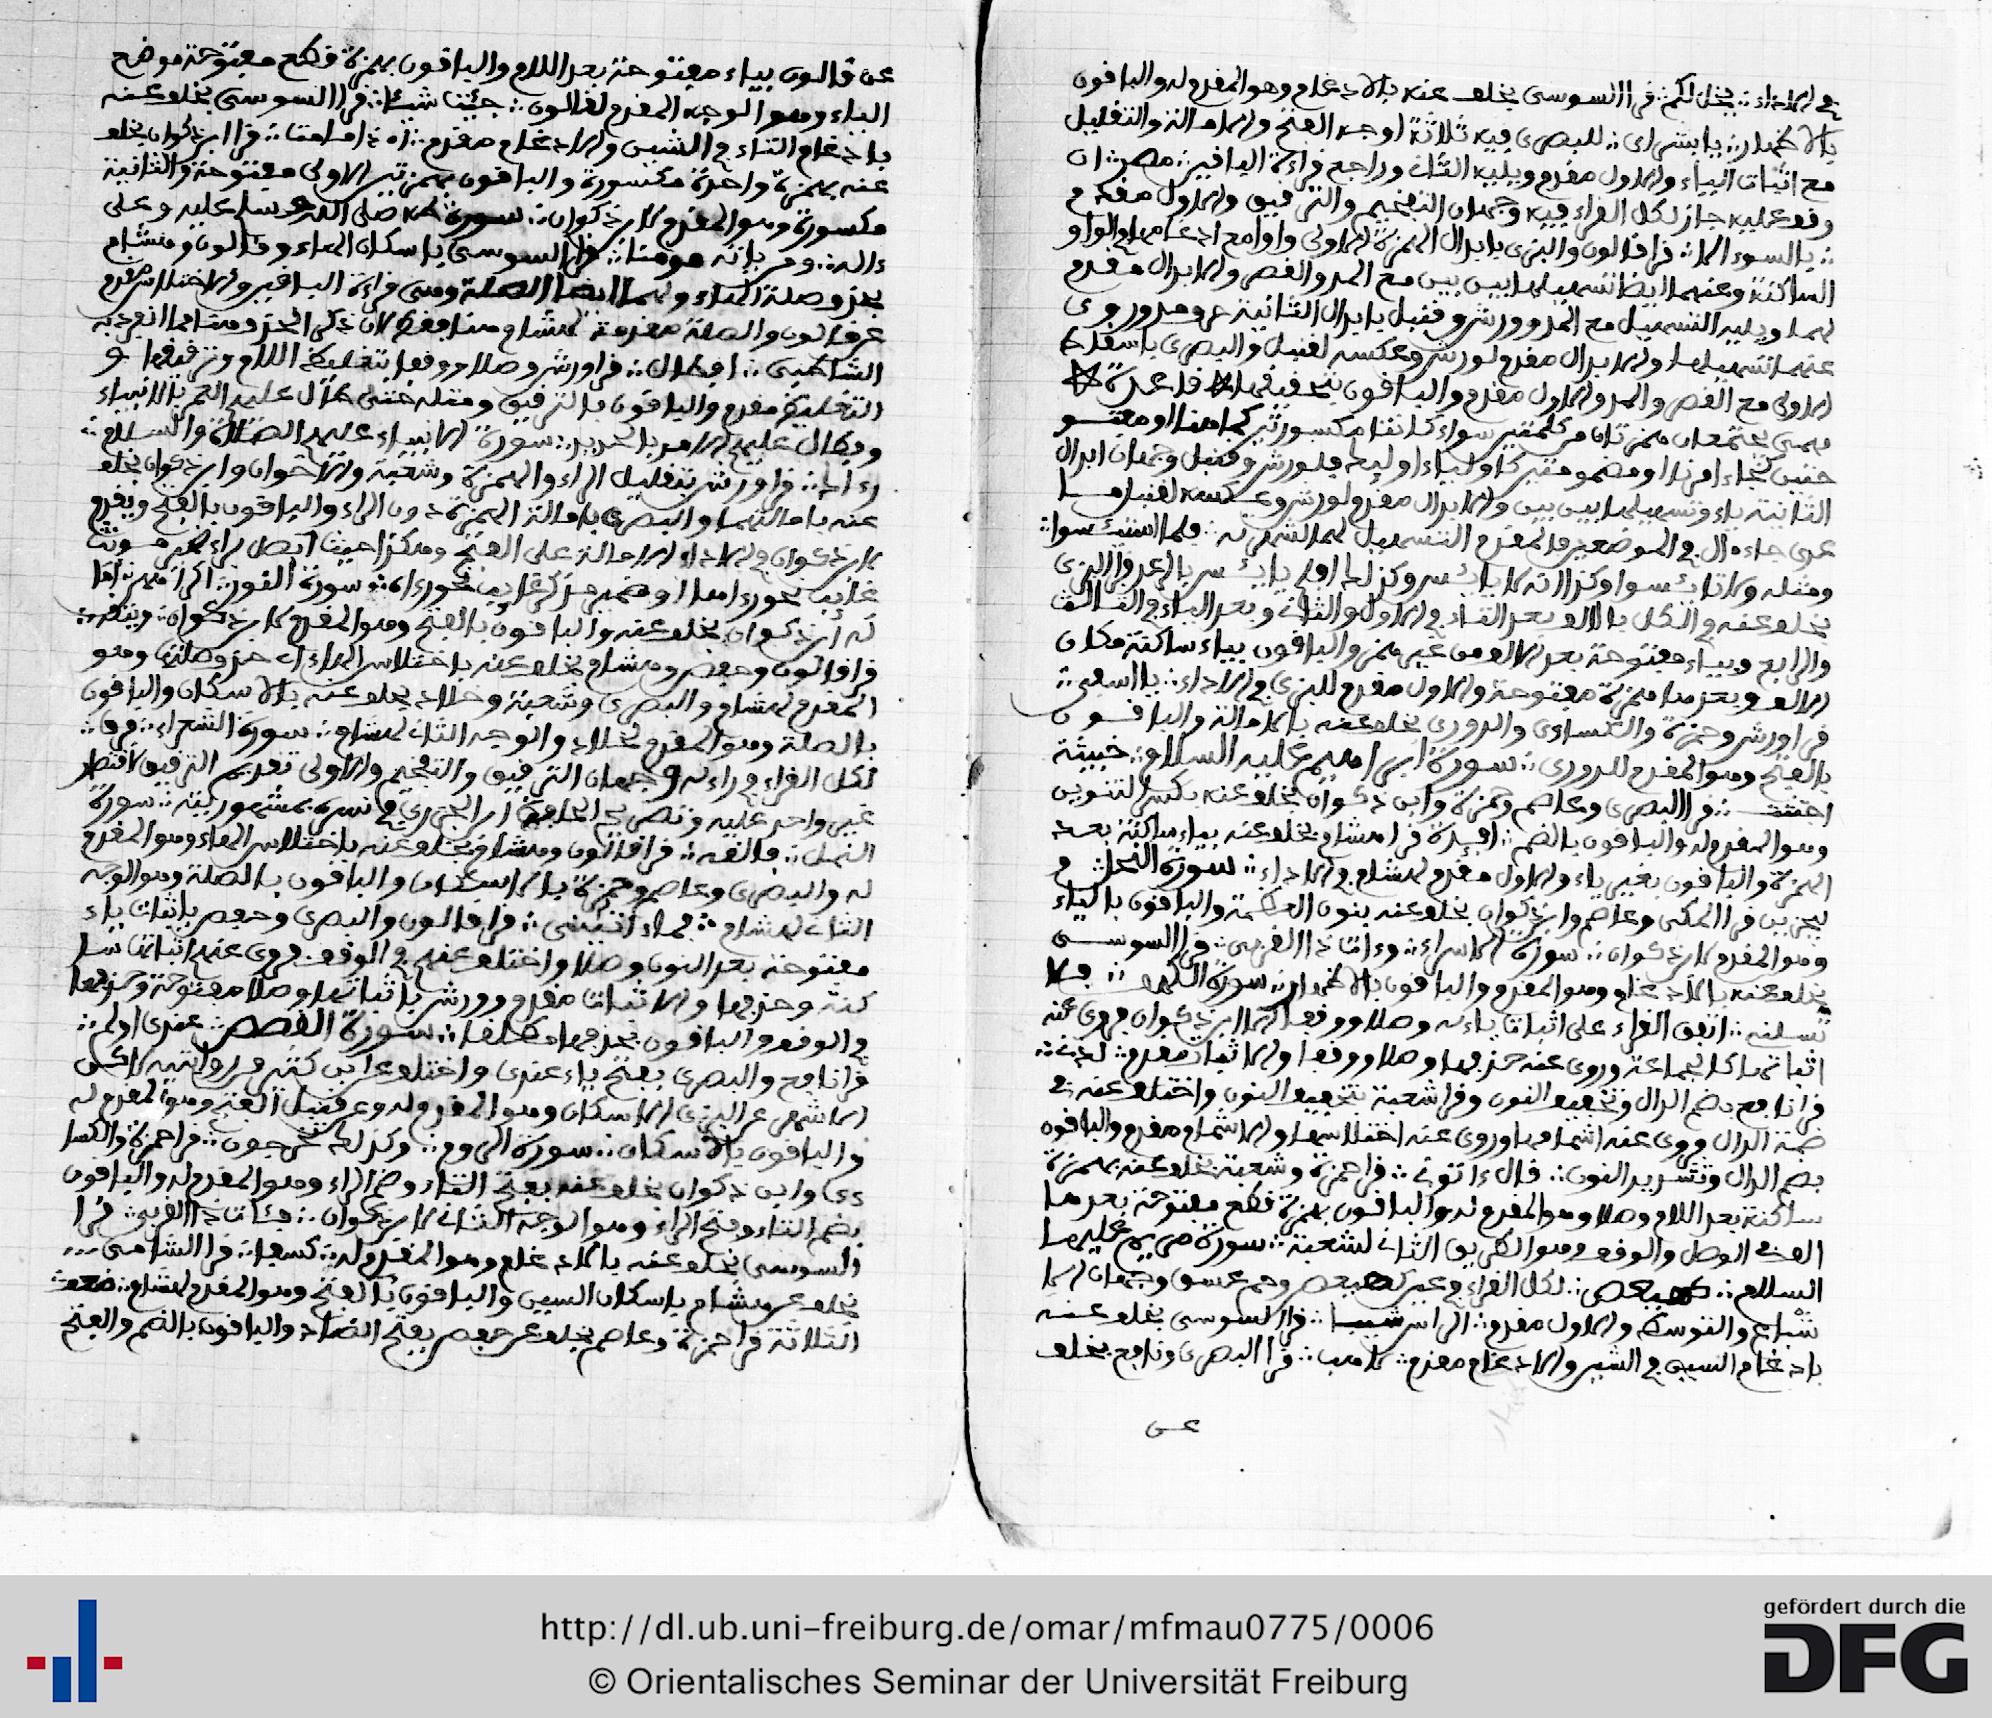 في الاداء ∴ يخل لكم ∴ قرا السوسي بخلف عنه بالادغام وهو المقدم له والباقون
بالاظهار ∴ يا بشراي ∴ للبصري فيه ثلاثة اوجه الفتح والامالة والتقليل
مع اثبات الياء والاول مقدم ويليه الثالث وراجع قراءة الباقين ∴ مصر ∴ ان
وقف عليه جاز لكل القراء فيه وجهان التفخيم والترقيق والاول مقدم
∴ بالسوء الا ∴ قرا قالون والبزي بابدال الهمزة الاولى واوا مع ادغامها في الواو
الساكنة وعنهما ايضا تسهيلها بين بين مع المد والقصر والابدال مقدم
لهما ويليه التسهيل مع المد وورش وقنبل بابدال الثانية حرف مد وروي
عنهما تسهيلها والابدال مقدم لورش وعكسه لقنبل والبصري باسقاط
الاولى مع القصر والمد والاول مقدم والباقون بتحقيقهما قاعدة
فمتى يجتمعان همزتان من كلمتين سواء كانتا مكسورتين كما هنا او مفتو
حتين كجاء امرنا او مضمومتين كاولياء اولئك فلورش وقنبل وجهان ابدال
الثانية ياء وتسهيلها بين بين والابدال مقدم لورش وعكسه لقنبل ما
عدى جاء ءال في الموضعين فالمقدم التسهيل لهما لشهرته ∴ فلما استيئسوا ∴
ومثله ولا تايئسوا وكذا انه لا يايئس وكذا افلم يايئس بالرعد قرا البزي
بخلف عنه في الكل بالالف بعد التاء في الاول والثاني وبعد الياء في الثالث
والرابع وبياء مفتوحة بعد الالف من غير همز والباقون بياء ساكنة مكان
الالف وبعدها همزة مفتوحة والاول مقدم للبزي في الاداء ∴ يا اسفى ∴
قرا ورش وحمزة والكسائي والدوري بخلف عنه بالامالة والباقون
بالفتح وهو المقدم للدوري ∴ سورة ابراهيم عليه السلام ∴ خبيثة
اجتثت ∴ قرا البصري وعاصم وحمزة وابن ذكوان بخلف عنه بكسر التنوين
وهو المقدم له والباقون بالضم ∴ افئدة قرا هشام بخلف عنه بياء ساكنة بعد
الهمزة والباقون بغير ياء والاول مقدم لهشام في الاداء ∴ سورة النحل ∴ و
ليجزين قرا المكي وعاصم وابن ذكوان بخلف عنه بنون العظمة والباقون بالياء
وهو المقدم لابن ذكوان ∴ سورة الاسراء ∴ وءات ذا القربى ∴ قرا السوسي
بخلف عنه بالادغام وهو المقدم والباقون بالاظهار ∴ سورة الكهف ∴ فلا
تسئلني ∴ اتفق القراء على اثبات ياءه وصلا ووقفا الا ابن ذكوان فروي عنه
اثباتها كالجماعة وروي عنه حذفها وصلا ووقفا والاثبات مقدم ∴ لدني ∴
قرا نافع بضم الدال وتخفيف النون وقرا شعبة بتخفيف النون واختلف عنه في
ضمة الدال فروي عنه اشمامها وروي عنه اختلاسها والاشمام مقدم والباقون
بضم الدال وتشديد النون ∴ قال ءاتوني ∴ قرا حمزة وشعبة بخلف عنه بهمزة
ساكنة بعد اللام وصلا وهو المقدم له والباقون بهمزة قطع مفتوحة بعدها
الف في الوصل والوقف وهو الطريق الثاني لشعبة ∴ سورة مريم عليها
السلام ∴ كهيعص ∴ لكل القراء في عين كهيعص وحم عسق وجهان الا
شباع والتوسط والاول مقدم ∴ الراس شيبا ∴ قرا السوسي بخلف عنه
بادغام السين في الشين والادغام مقدم ∴ لاهب ∴ قرا البصري ونافع بخلف
عن
عن قالون بياء مفتوحة بعد اللام والباقون بهمزة قطع مفتوحة موضع
الياء وهو الوجه المقدم لقالون ∴ جئت شيئا ∴ قرا السوسي بخلف عنه
بادغام التاء في الشين والادغام مقدم ∴ اءذا ما مت ∴ قرا ابن ذكوان بخلف
عنه بهمزة واحدة مكسورة والباقون بهمزتين الاولى مفتوحة والثانية
مكسورة وهو المقدم لابن ذكوان ∴ سورة طه صلى الله وسلم عليه وعلى
ءاله ∴ ومن ياته مومنا ∴ قرا السوسي باسكان الهاء وقالون وهشام
بحذف صلة الهاء ولهما ايضا الصلة وهي قراءة الباقين والاختلاس مقدم
عن قالون والصلة مقدمة لهشام
الشاطبي ∴ افطال ∴ قرا ورش وصلا ووقفا بتغليظ اللام وترقيقها و
التغليظ مقدم والباقون بالترقيق ومثله حتى طال عليهم العمر بالانبياء
وفطال عليهم الامد بالحديد ∴ سورة الانبياء عليهم الصلاة والسلام ∴
رءاك ∴ قرا ورش بتقليل الراء والهمزة وشعبة والاخوان وابن ذكوان بخلف
عنه بامالتهما والبصري بامالة الهمزة دون الراء والباقون بالفتح ويقدم
لابن ذكوان في الاداء الامالة على الفتح وهكذا حيث اتصل براء ضمير مونث
غايب نحو رءاها او ضمير مذكر غايب نحو رءاه ∴ سورة النور ∴ اكراههن ∴ اما
له ابن ذكوان بخلف عنه والباقون بالفتح وهو المقدم لابن ذكوان ∴ ويتقه ∴
قرا قالون وحفص وهشام بخلف عنه باختلاس الهاء اي حذف صلتها وهو
المقدم لهشام والبصري وشعبة وخلاد بخلف عنه بالاسكان والباقون
بالصلة وهو المقدم لخلاد والوجه الثاني لهشام ∴ سورة الشعراء ∴ فرق ∴
لكل القراء في راءه وجهان الترقيق والتفخيم والاولى تقديم الترقيق لاقتصار
غير واحد عليه ونص الحافظ ابن الجزري في نشره بمشهوريته ∴ سورة
النمل ∴ فالقه ∴ قرا قالون وهشام بخلف عنه باختلاس الهاء وهو المقدم
له والبصري وعاصم وحمزة بالاسكان والباقون بالصلة وهو الوجه
الثاني لهشام ∴ فما ءاتيني ∴ قرا قالون والبصري وحفص باثبات ياء
مفتوحة بعد النون وصلا واختلف عنهم في الوقف فروي عنهم اثباتها سا
كنة وحذفها والاثبات مقدم وورش باثباتها وصلا مفتوحة وحذفها
في الوقف والباقون بحذفها مطلقا ∴ سورة القصص ∴ عندي اولم ∴
قرا نافع والبصري بفتح ياء عندي واختلف عن ابن كثير من روايتيه لاكن
الاشهر عن البزي الاسكان وهو المقدم له وعن قنبل الفتح وهو المقدم له
والباقون بالاسكان ∴ سورة الروم ∴ وكذلك تخرجون ∴ قرا حمزة والكسا
ءي وابن ذكوان بخلف عنه بفتح التاء وضم الراء وهو المقدم له والباقون
بضم التاء وفتح الراء وهو الوجه الثاني لابن ذكوان ∴ فئات ذا القربى ∴ قرا
السوسي بخلف عنه بالادغام وهو المقدم له ∴ كسفا ∴ قرا الشامي
بخلف عن هشام باسكان السين والباقون بالفتح وهو المقدم لهشام ∴ ضعف ∴
الثلاثة قرا حمزة وعاصم بخلف عن حفص بفتح الضاد والباقون بالضم والفتح
http://dl.ub.uni-freiburg.de/omar/mfmau0775/0006
© Orientalisches Seminar der Universität Freiburg
gefördert durch die
DFG